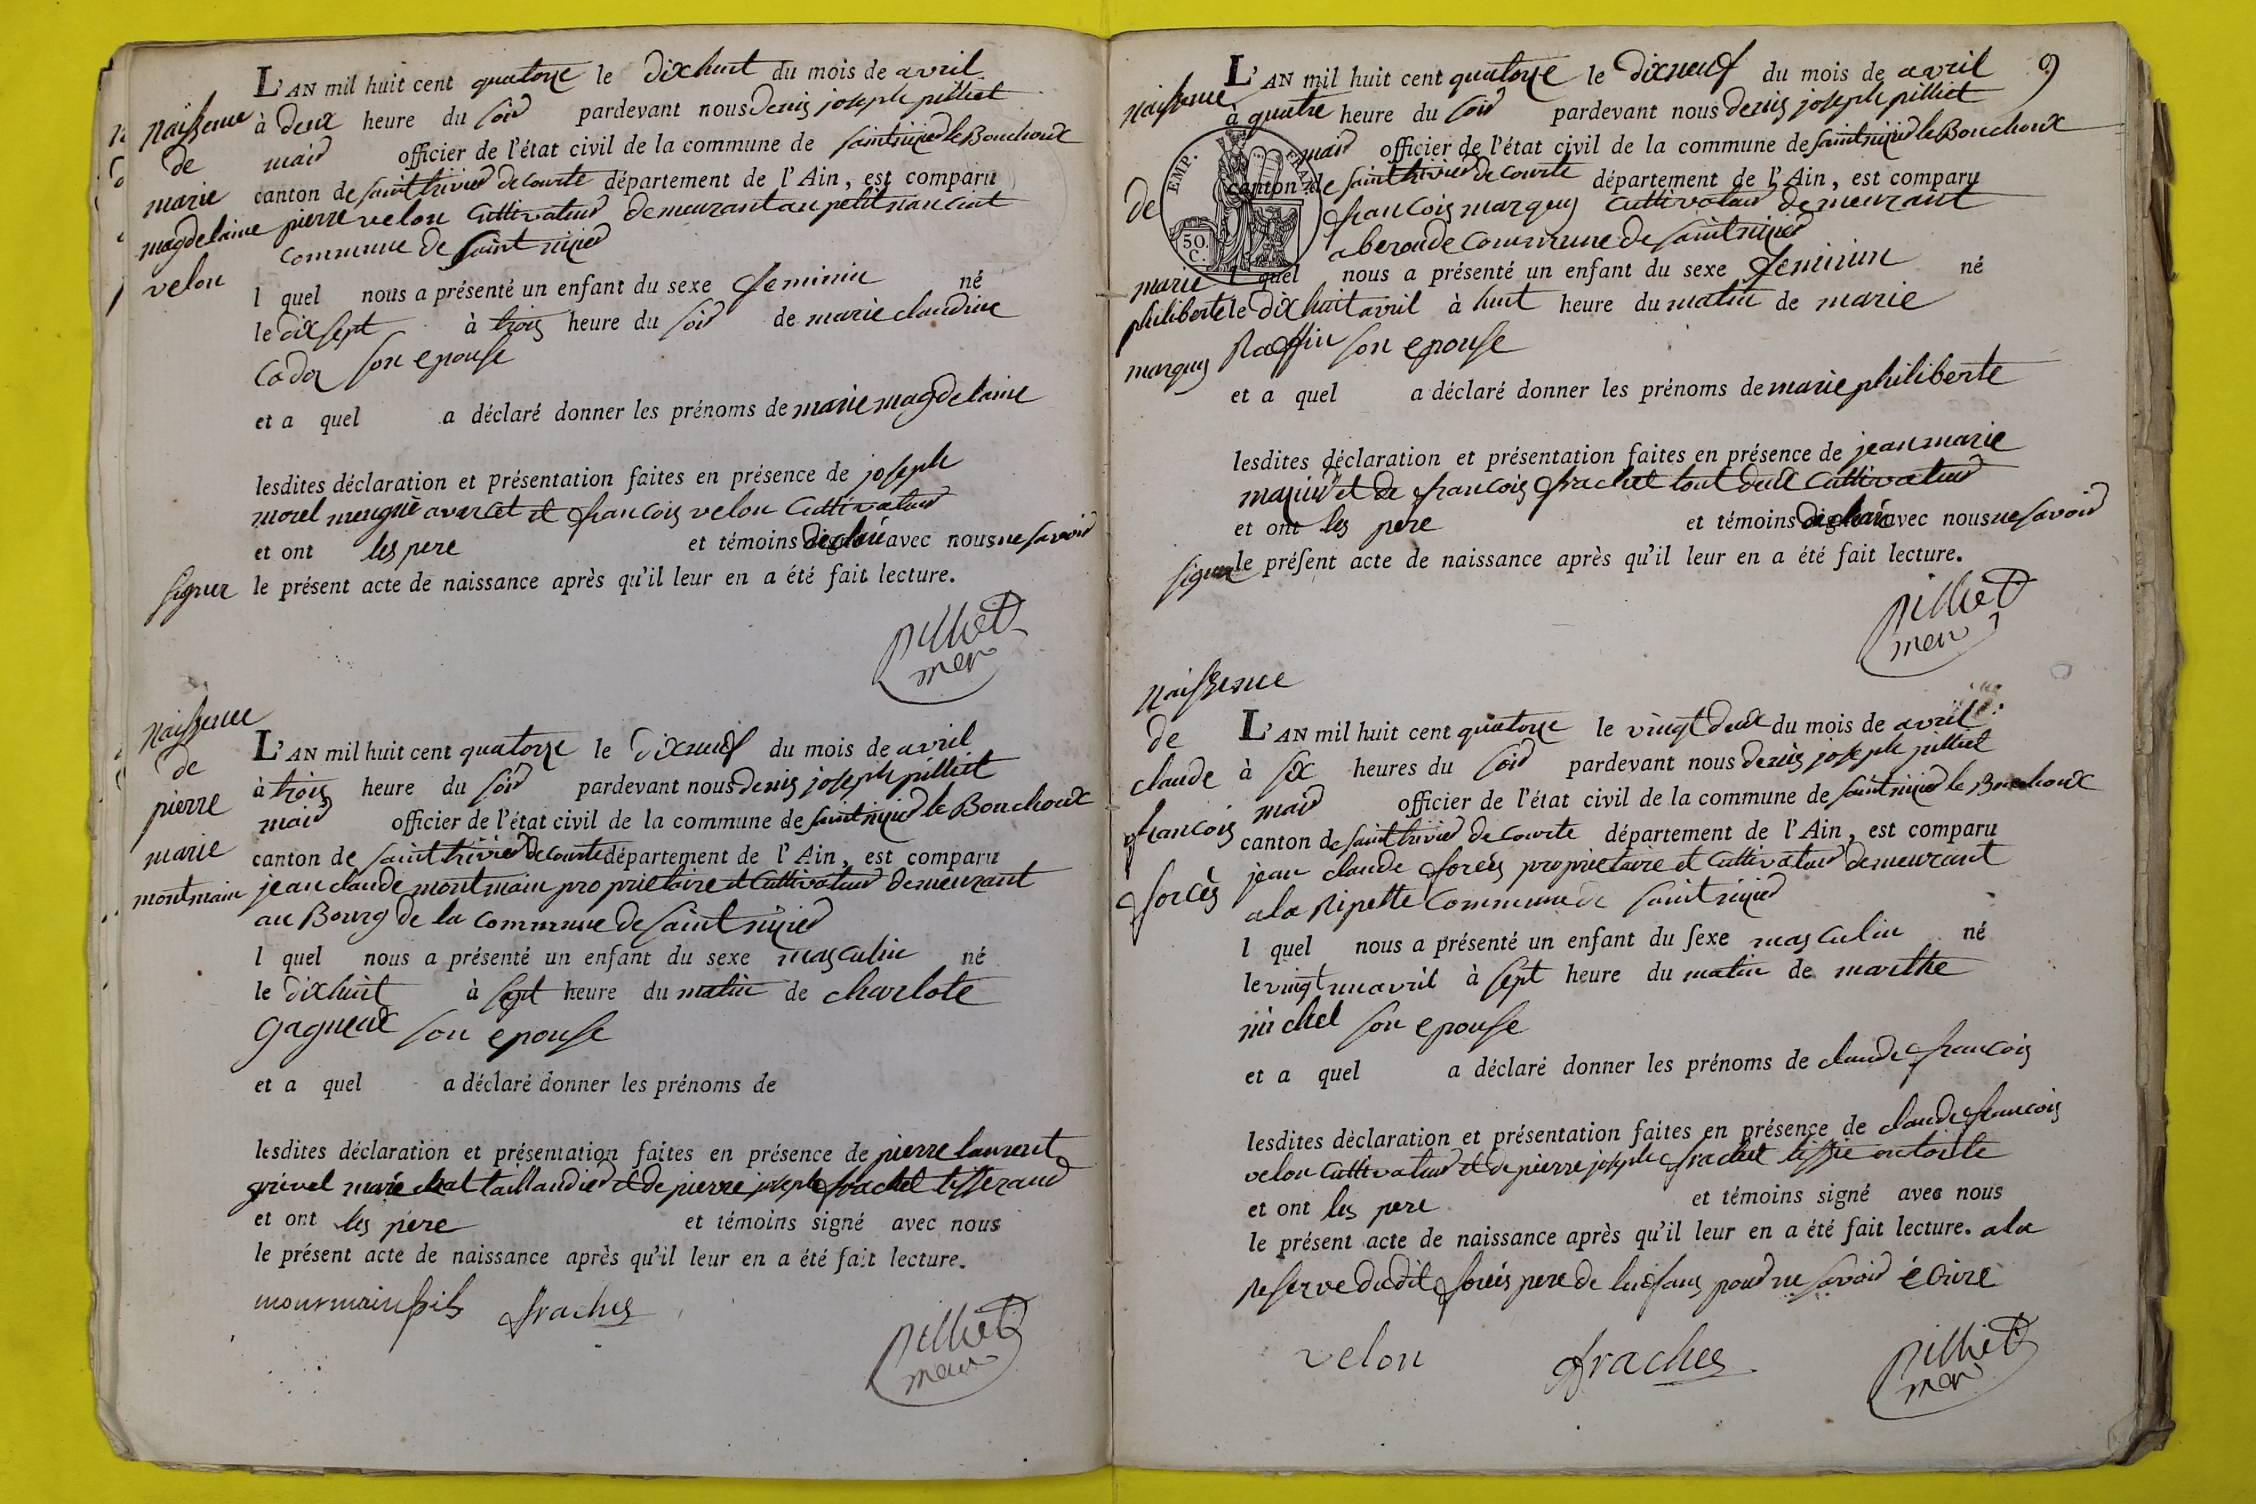 L'AN mil huit cent quatorze le dixhuit du mois de avril
Naissence à deux heure du soir pardevant nous denis joseph pilliet
de mair officier de l'état civil de la commune de saint nizier le Bouchoux
marie canton de saint trivier de courte département de l'Ain, est comparu
magdelaine pierre velon cultivateur demeurant au petit
velon commune de saint nizier
l quel nous a présenté un enfant du sexe feminin né
le dix sept à trois heure du soir de marie claudine
son epouse
et a quel a déclaré donner les prénoms de marie magdelaine
lesdites déclaration et présentation faites en présence de joseph
morel et françois velon cultivateur
et ont les pere et témoins declaré avec nous ne savoir
signer le présent acte de naissance après qu'il leur en a été fait lecture.
pilliet
mer
Naissence
L'AN mil huit cent quatorze le dixneuf du mois de avril
de à trois heure du soir pardevant nous denis joseph pilliet
pierre mair officier de l'état civil de la commune de saint nizier le Bouchoux
marie canton de saint trivier de courte département de l'Ain, est comparu
montmain jean claude montmain proprietaire et cultivateur demeurant
au Bourg de la commune de saint nizier
l quel nous a présenté un enfant du sexe masculin né
le dixhuit à sept heure du matin de charlote
gagneux son epouse
et a quel a déclaré donner les prénoms de
lesdites déclaration et présentation faites en présence de pierre laurent
grivel maréchal taillandier et de pierre joseph frachet tisserand
et ont les pere et témoins signé avec nous
le présent acte de naissance après qu'il leur en a été fait lecture.
monmain fils frachet
pilliet
mair
9
L'AN mil huit cent quatorze le dixneuf du mois de avril
Naissence à quatre heure du soir pardevant nous denis joseph pilliet
mair officier de l'état civil de la commune de saint nizier le Bouchoux
EMP. FRAN.
50. C.
de canton de saint trivier de courte département de l'Ain, est comparu
françois marquis cultivateur demeurant
a beroude commune de saint nizier
marie l quel nous a présenté un enfant du sexe feminin né
philiberte le dixhuit avril à huit heure du matin de marie
marquis Raffin son epouse
et a quel a déclaré donner les prénoms de marie philiberte
lesdites déclaration et présentation faites en présence de jean marie
mazuir et de françois frachet tout deux cultivateur
et ont les pere et témoins declaré avec nous ne savoir
signer le présent acte de naissance après qu'il leur en a été fait lecture.
pilliet
mer
Naissence
L'AN mil huit cent quatorze le vingt deux du mois de avril
de à six heures du soir pardevant nous denis joseph pilliet
claude mair officier de l'état civil de la commune de saint nizier le Bouchoux
françois canton de saint trivier de courte département de l'Ain, est comparu
forcès jean claude forcès proprietaire et cultivateur demeurant
a la Ripette commune de saint nizier
l quel nous a présenté un enfant du sexe masculin né
le vingt un avril à sept heure du matin de marthe
michel son epouse
et a quel a déclaré donner les prénoms de claude françois
lesdites déclaration et présentation faites en présence de claude françois
velon cultivateur et de pierre joseph frachet tissie en toile
et ont les pere et témoins signé avec nous
le présent acte de naissance après qu'il leur en a été fait lecture. a la
Reserve dudit forcès pere de l'enfans pour ne savoir écrire
velon frachet
pilliet
mer